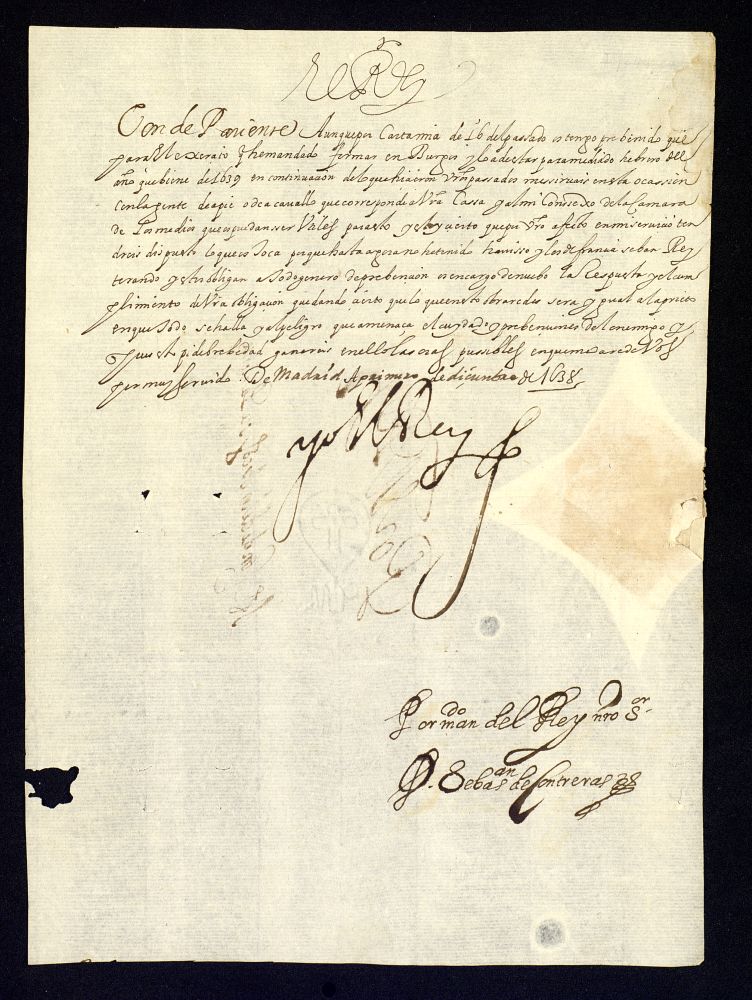 el Rey
Conde Pariente Aunque por Carta mia de 16 del passado os tengo prebenido que
para el exercito q̃ he mandado formar en Burgos y lo a de estar para mediado hebrero del
año que biene de 1639 en continuacion de lo que hicieron vros passados me sirvais en esta ocassion
con la gente de a pie o de a cavallo que corresponde a Vra Cassa y al mi Conssexo de la Camara
de los medios que os puedan ser Utiles para esto y estoy cierto que por vro affecto en mi servicio ten
dreis dispuesto lo que os toca porque hasta agora no he tenido havisso y los de francia se ban Rey
terando y estos obligan a todo genero de prebencion os encargo de nuebo la Respuesta y el cum
plimiento de Vra obligacion quedando cierto que lo que en esto obraredes sera ygual al aprieto
en que todo se halla y al peligro que amenaca el cuydado y prebenciones del enemigo y
pues esto pide brebedad ganareis en ello las oras possibles en que me dare de Vos
por muy servido. De Madrid A primero de diciembre de 1638
yo el Rey
Por mando del Rey nro Sor
D. Sebasan de Contreras